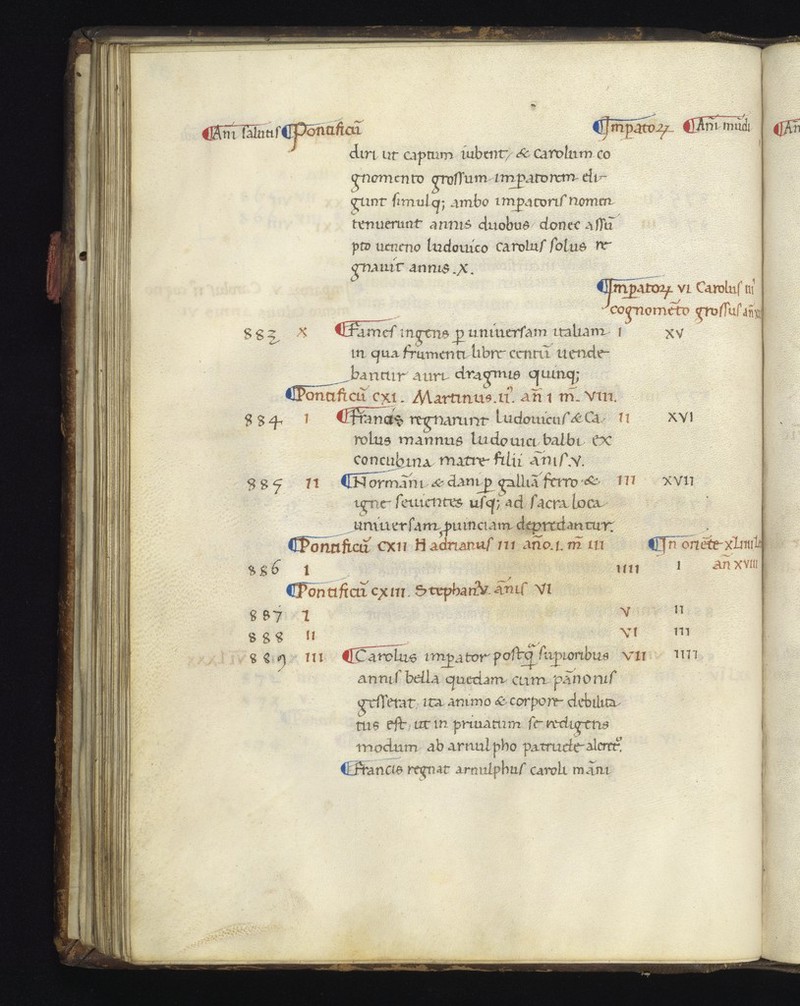 Ani salutis Pontificū Impatoꝝ Ani mūdi
diri ut captum iubent, & Carolum co
gnomento grossum impatorem eli-
gunt simulq; ambo impatoris nomen
tenuerunt annis duobus donec assū
pto ueneno ludouico carolus solus re
gnauit annis .X.
Impatoꝝ VI Carolus iii
cognomēto grossus
883 X Fames ingens p uniuersam italiam I XV
in qua frumenti libre centū uende-
bantur auri dragmis quinq;
Pontificū CXI. Martinus .ii. añ 1 m̄. VIII.
884 1 Francis regnarunt ludouicus & Ca- II XVI
rolus mannus ludouici balbi ex
concubina matre filii ānis .V.
885 II Normāni & dani p galliā ferro & III XVII
igne seuientes usq; ad sacra loca
uniuersam puinciam depredantur.
Pontificū CXII Hadrianus III año .1. m̄ III In oriēte
886 1 IIII I añ XVIII
Pontificū CXIII. Stephanꝰ V. ānis VI
887 I V II
888 II VI III
889 III Carolus impator postq̄ supioribus VII IIII
annis bella quedam cum pānonis
gesserat, ita animo & corpore debilita
tus est, ut in priuatum se redigens
modum ab arnulpho patruele
Francis regnat arnulphus caroli māni